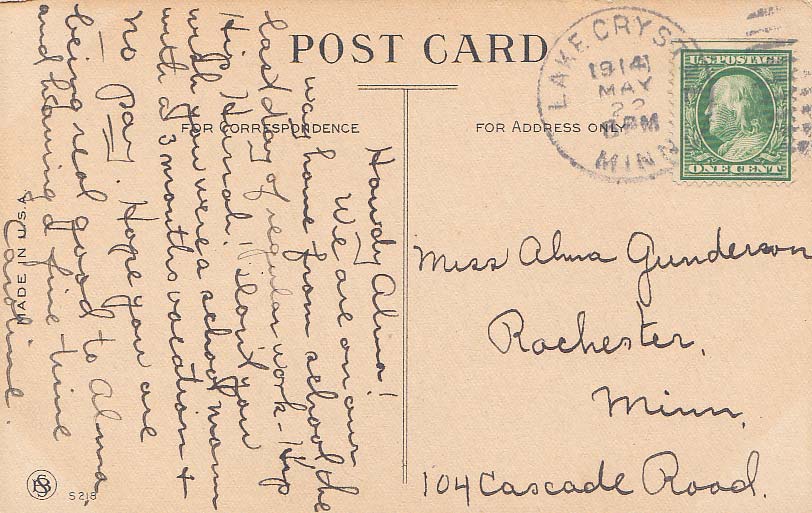 POST CARD
FOR CORRESPONDENCE
FOR ADDRESS ONLY
LAKE CRYST
1914
MAY
22
8 PM
MINN
U.S. POSTAGE
ONE CENT
Howdy Alma!
We are on our
way home from school, the
last day of regular work - Hip
Hip Hurrah! Don't you
wish you were a school mam
with a 3 months vacation +
no pay. Hope you are
- being real good to Alma,
and having a fine time
Caroline.
Miss Alma Gunderson
Rochester,
Minn,
104 Cascade Road.
MADE IN U.S.A.
S 218